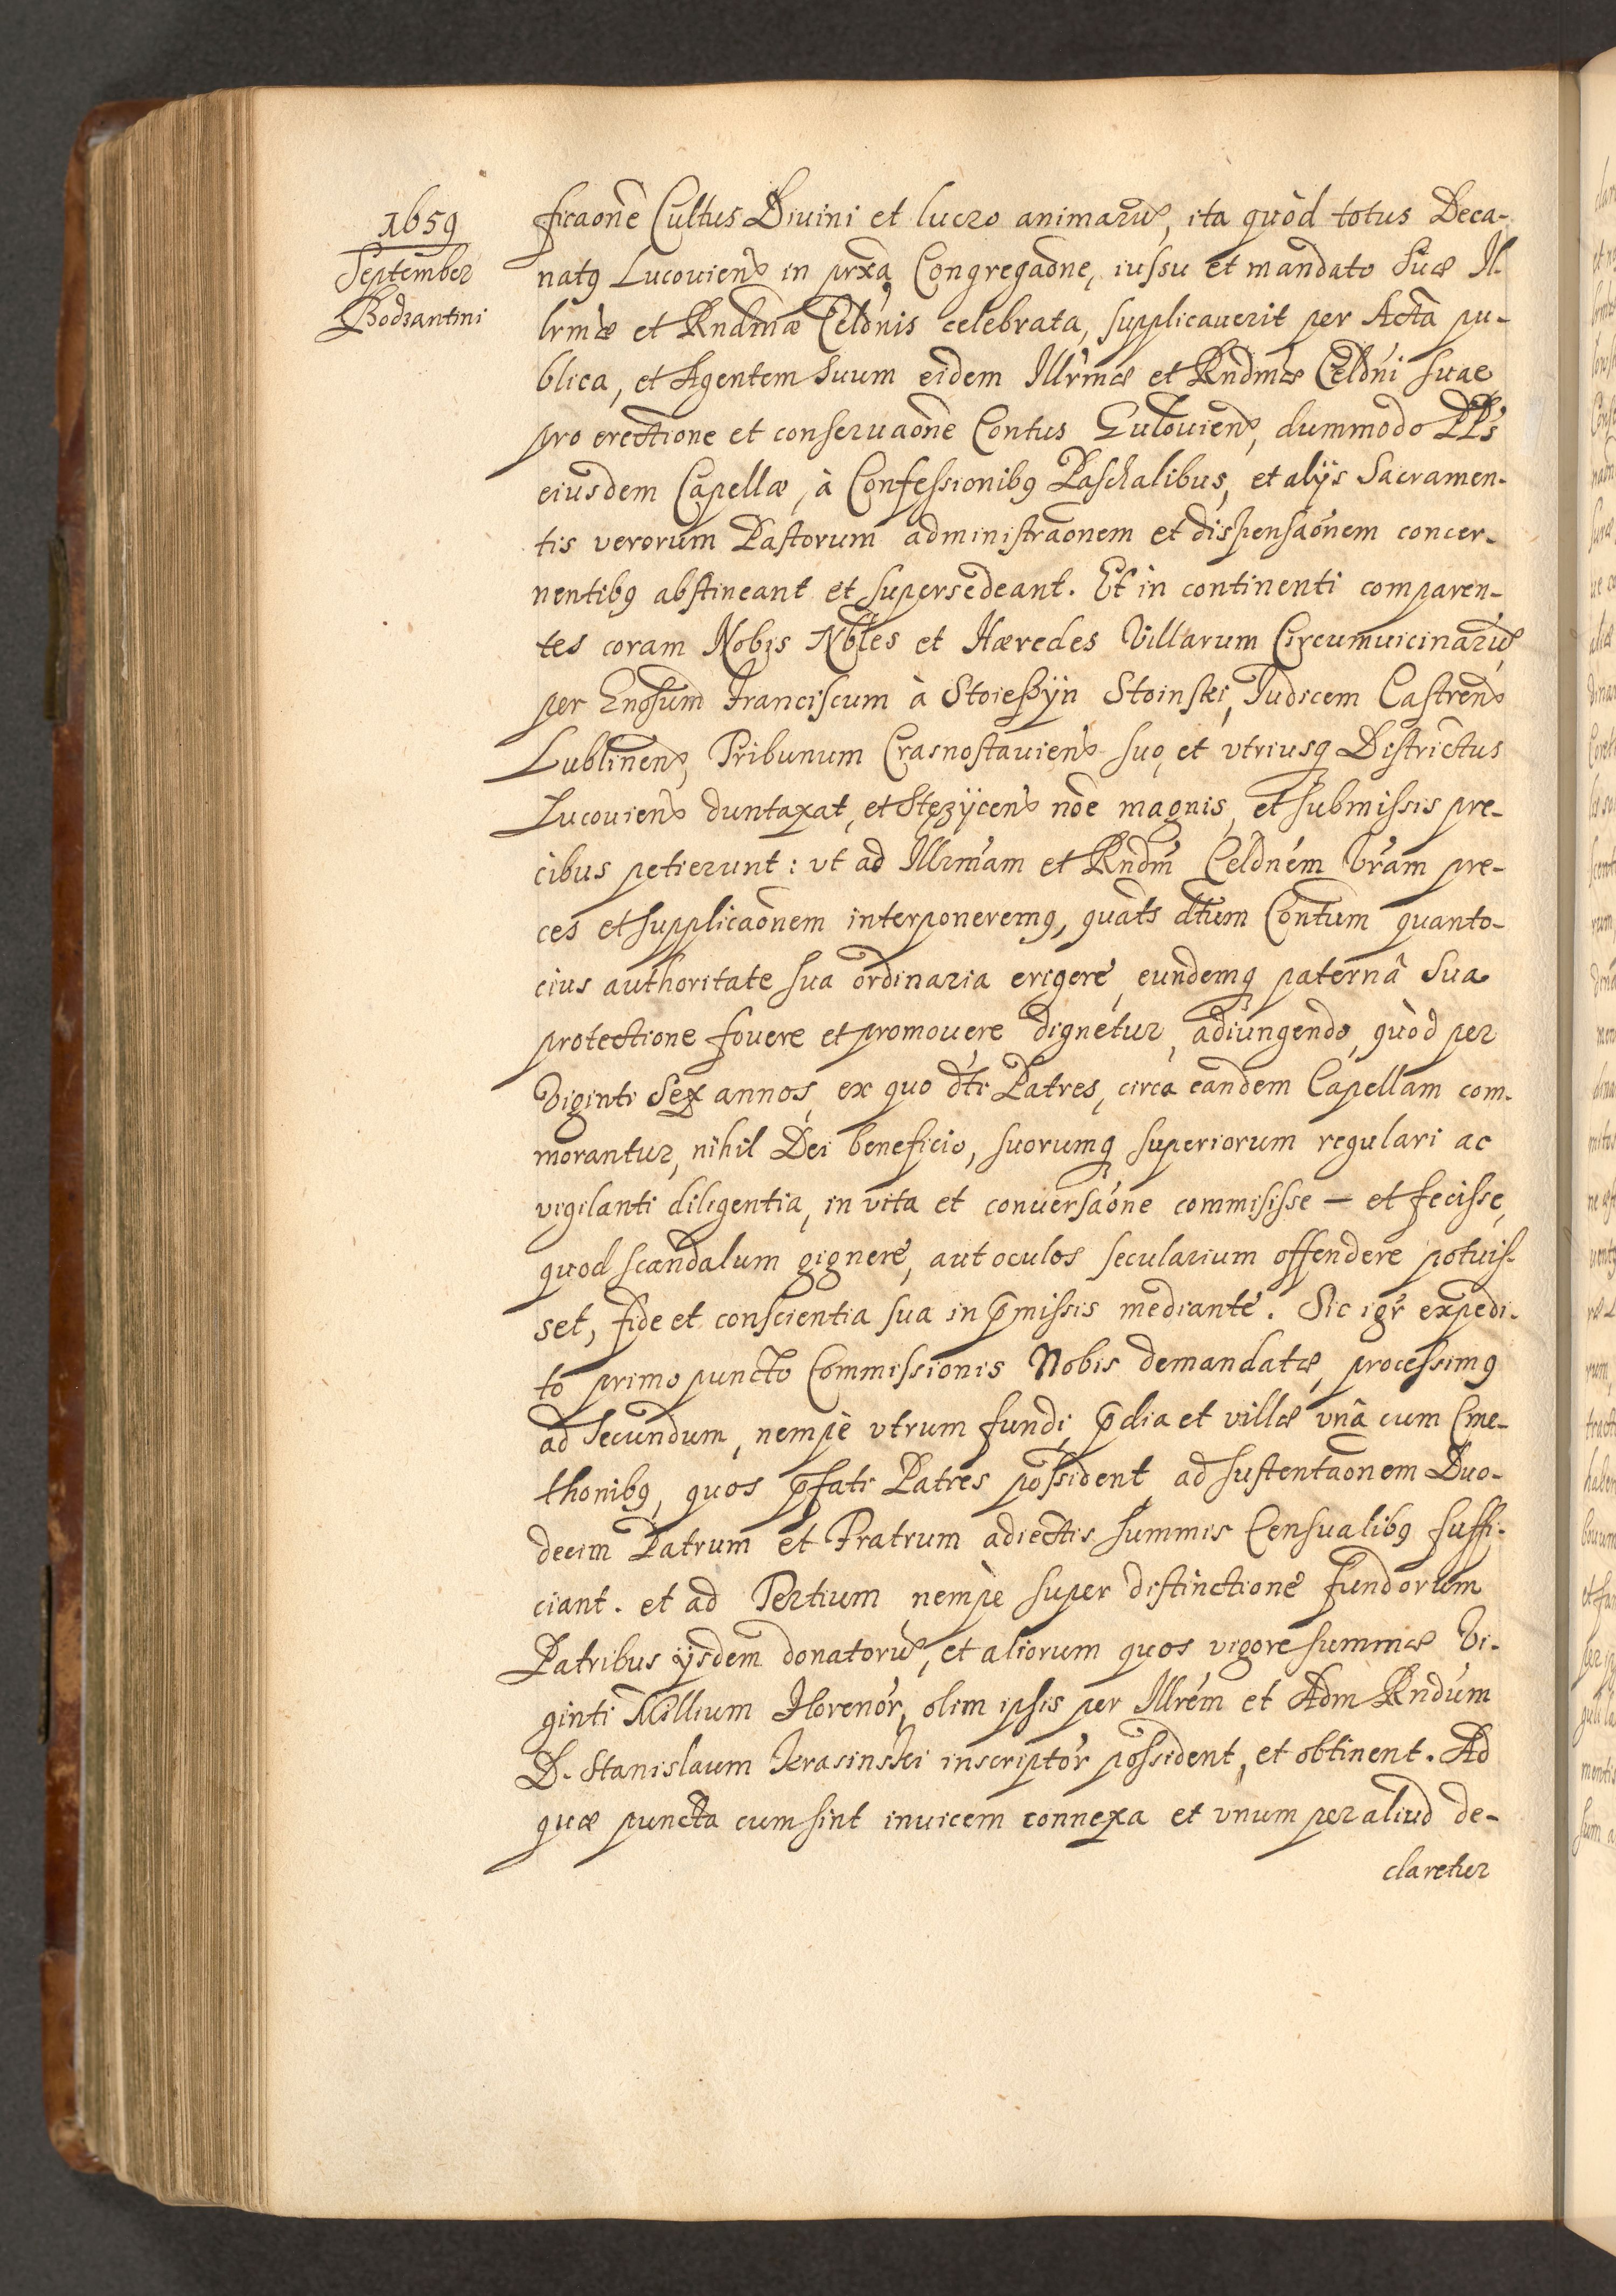 1659
September
Bodzantini
ficaone Cultus Diuini et lucro animarũ, ita quòd totus Deca-
natq Lucouien in prxa Congregaone, iussu et mandato Suæ Il-
lrmæ et Rndmæ Celdnis celebrata, supplicauerit per Acta pu-
blica, et Agentem suum eidem Illrmæ et Rndmæ Celdni suae
pro erectione et conseruaone Contus Gulouien, dummodo PPs
eiusdem Capellæ, à Confessionibq Paschalibus, et alijs Sacramen-
tis verorum Pastorum administraonem et dispensaonem concer-
nentibq abstineant et supersedeant. Et in continenti comparen-
tes coram Nobis Nbles et Hæredes Villarum Circumuicinarũ
per Gnosum Franciscum à Stoieszyn Stoinski, Judicem Castren
Lublinen, Tribunum Crasnostauien suo, et vtriusq Districtus
Lucouien duntaxat, et Stęzÿcen noe magnis, et submissis pre-
cibus petierunt: vt ad Illrmam et Rndm Celdnem Vram pre-
ces et supplicaonem interponeremq, quats dtum Contum quanto-
cius authoritate sua ordinaria erigere, eundemq paternâ Sua
protectione fouere et promouere dignetur, adiungendo, quòd per
Viginti Sex annos, ex quo dti Patres, circa eandem Capellam com-
morantur, nihil Dei beneficio, suorumq superiorum regulari ac
vigilanti diligentia, in vita et conuersaone commisisse – et fecisse,
quod scandalum gignere, aut oculos secularium offendere potuis-
set, fide et conscientia sua in pmissis mediante. Sic igr expedi-
to primo puncto Commissionis Nobis demandatæ, processimq
ad Secundum, nempè vtrum fundi, pdia et villæ vnâ cum Cme-
thonibq, quos pfati Patres possident ad sustentaonem Duo-
decim Patrum et Fratrum adiectis summis Censualibq suffi-
ciant. et ad Tertium nempè super distinctione fundorum
Patribus ijsdem donatorũ, et aliorum quos vigore summæ Vi-
ginti Millium Florenor, olim ipsis per Illrem et Adm Rndum
D. Stanislaum Krasinski inscriptor possident, et obtinent. Ad
quæ puncta cum sint inuicem connexa et vnum per aliud de-
claretur